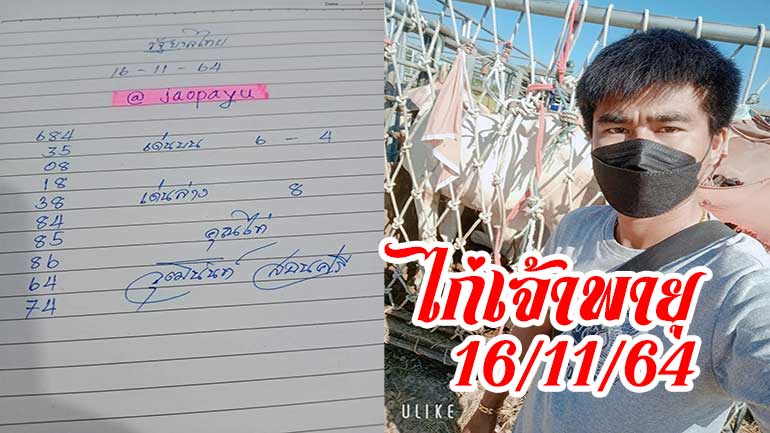 รัฐบาลไทย
16-11-64
@ jaopayu
684
35 เด่นบน 6 - 4
08
18
38 เด่นล่าง 8
84
85 คุณไก่
86
64
74
ไก่เจ้าพายุ
16/11/64
ULIKE